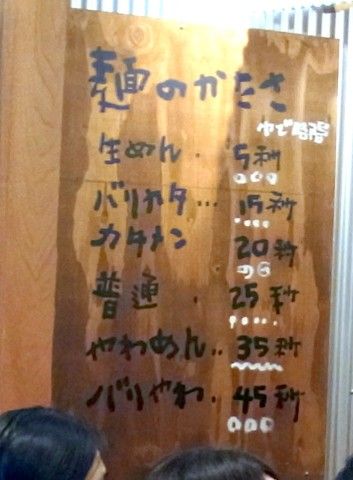 麺のかたさ
ゆで時間
生めん・ 5秒
バリカタ… 15秒
カタメン 20秒
普通 ・ 25秒
やわめん‥ 35秒
バリやわ・ 45秒